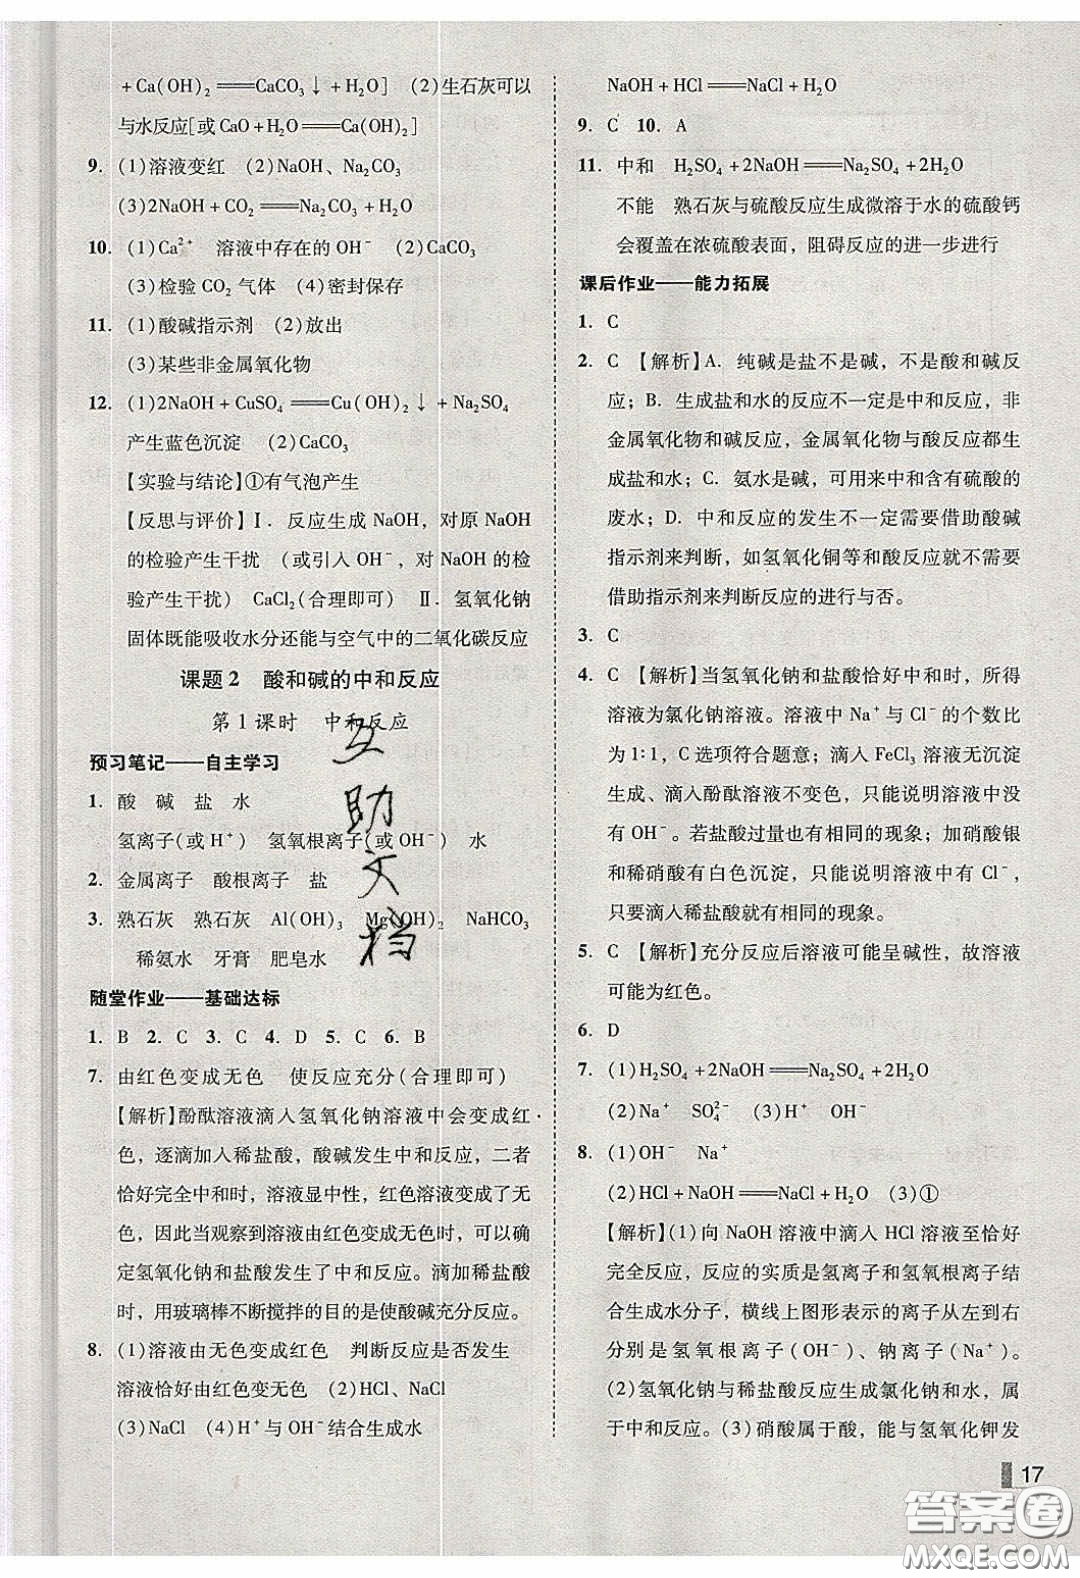 +Ca(OH)₂══CaCO₃↓+H₂O] (2)生石灰可以
与水反应[或CaO+H₂O══Ca(OH)₂]
9. (1)溶液变红 (2)NaOH、Na₂CO₃
(3)2NaOH+CO₂══Na₂CO₃+H₂O
10. (1)Ca²⁺ 溶液中存在的OH⁻ (2)CaCO₃
(3)检验CO₂气体 (4)密封保存
11. (1)酸碱指示剂 (2)放出
(3)某些非金属氧化物
12. (1)2NaOH+CuSO₄══Cu(OH)₂↓+Na₂SO₄
产生蓝色沉淀 (2)CaCO₃
【实验与结论】①有气泡产生
【反思与评价】Ⅰ. 反应生成NaOH，对原NaOH
的检验产生干扰 (或引入OH⁻，对NaOH的检
验产生干扰) CaCl₂(合理即可) Ⅱ. 氢氧化钠
固体既能吸收水分还能与空气中的二氧化碳反应
课题2 酸和碱的中和反应
第1课时 中和反应
预习笔记——自主学习
1. 酸 碱 盐 水
氢离子(或H⁺) 氢氧根离子(或OH⁻) 水
2. 金属离子 酸根离子 盐
3. 熟石灰 熟石灰 Al(OH)₃ Mg(OH)₂ NaHCO₃
稀氨水 牙膏 肥皂水
随堂作业——基础达标
1. B 2. C 3. C 4. D 5. C 6. B
7. 由红色变成无色 使反应充分(合理即可)
【解析】酚酞溶液滴入氢氧化钠溶液中会变成红
色，逐滴加入稀盐酸，酸碱发生中和反应，二者
恰好完全中和时，溶液显中性，红色溶液变成了无
色，因此当观察到溶液由红色变成无色时，可以确
定氢氧化钠和盐酸发生了中和反应。滴加稀盐酸
时，用玻璃棒不断搅拌的目的是使酸碱充分反应。
8. (1)溶液由无色变成红色 判断反应是否发生
溶液恰好由红色变无色 (2)HCl、NaCl
(3)NaCl (4)H⁺与OH⁻结合生成水
互
助
文
档
NaOH+HCl══NaCl+H₂O
9. C 10. A
11. 中和 H₂SO₄+2NaOH══Na₂SO₄+2H₂O
不能 熟石灰与硫酸反应生成微溶于水的硫酸钙
会覆盖在浓硫酸表面，阻碍反应的进一步进行
课后作业——能力拓展
1. C
2. C 【解析】A. 纯碱是盐不是碱，不是酸和碱反
应；B. 生成盐和水的反应不一定是中和反应，非
金属氧化物和碱反应，金属氧化物与酸反应都生
成盐和水；C. 氨水是碱，可用来中和含有硫酸的
废水；D. 中和反应的发生不一定需要借助酸碱
指示剂来判断，如氢氧化铜等和酸反应就不需要
借助指示剂来判断反应的进行与否。
3. C
4. C 【解析】当氢氧化钠和盐酸恰好中和时，所得
溶液为氯化钠溶液。溶液中Na⁺与Cl⁻的个数比
为1∶1，C选项符合题意；滴入FeCl₃溶液无沉淀
生成、滴入酚酞溶液不变色，只能说明溶液中没
有OH⁻。若盐酸过量也有相同的现象；加硝酸银
和稀硝酸有白色沉淀，只能说明溶液中有Cl⁻，
只要滴入稀盐酸就有相同的现象。
5. C 【解析】充分反应后溶液可能呈碱性，故溶液
可能为红色。
6. D
7. (1)H₂SO₄+2NaOH══Na₂SO₄+2H₂O
(2)Na⁺ SO₄²⁻ (3)H⁺ OH⁻
8. (1)OH⁻ Na⁺
(2)HCl+NaOH══NaCl+H₂O (3)①
【解析】(1)向NaOH溶液中滴入HCl溶液至恰好
完全反应，反应的实质是氢离子和氢氧根离子结
合生成水分子，横线上图形表示的离子从左到右
分别是氢氧根离子(OH⁻)、钠离子(Na⁺)。
(2)氢氧化钠与稀盐酸反应生成氯化钠和水，属
于中和反应。(3)硝酸属于酸，能与氢氧化钾发
17
答案圈
MXQE.COM